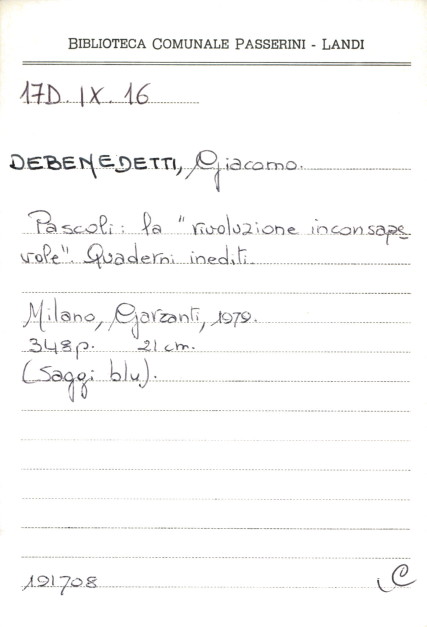 BIBLIOTECA COMUNALE PASSERINI - LANDI
17D. IX. 16
DEBENEDETTI, Giacomo.
Pascoli: la "rivoluzione inconsape
vole". Quaderni inediti.
Milano, Garzanti, 1979.
348p. 21 cm.
(Saggi blu).
191708 C